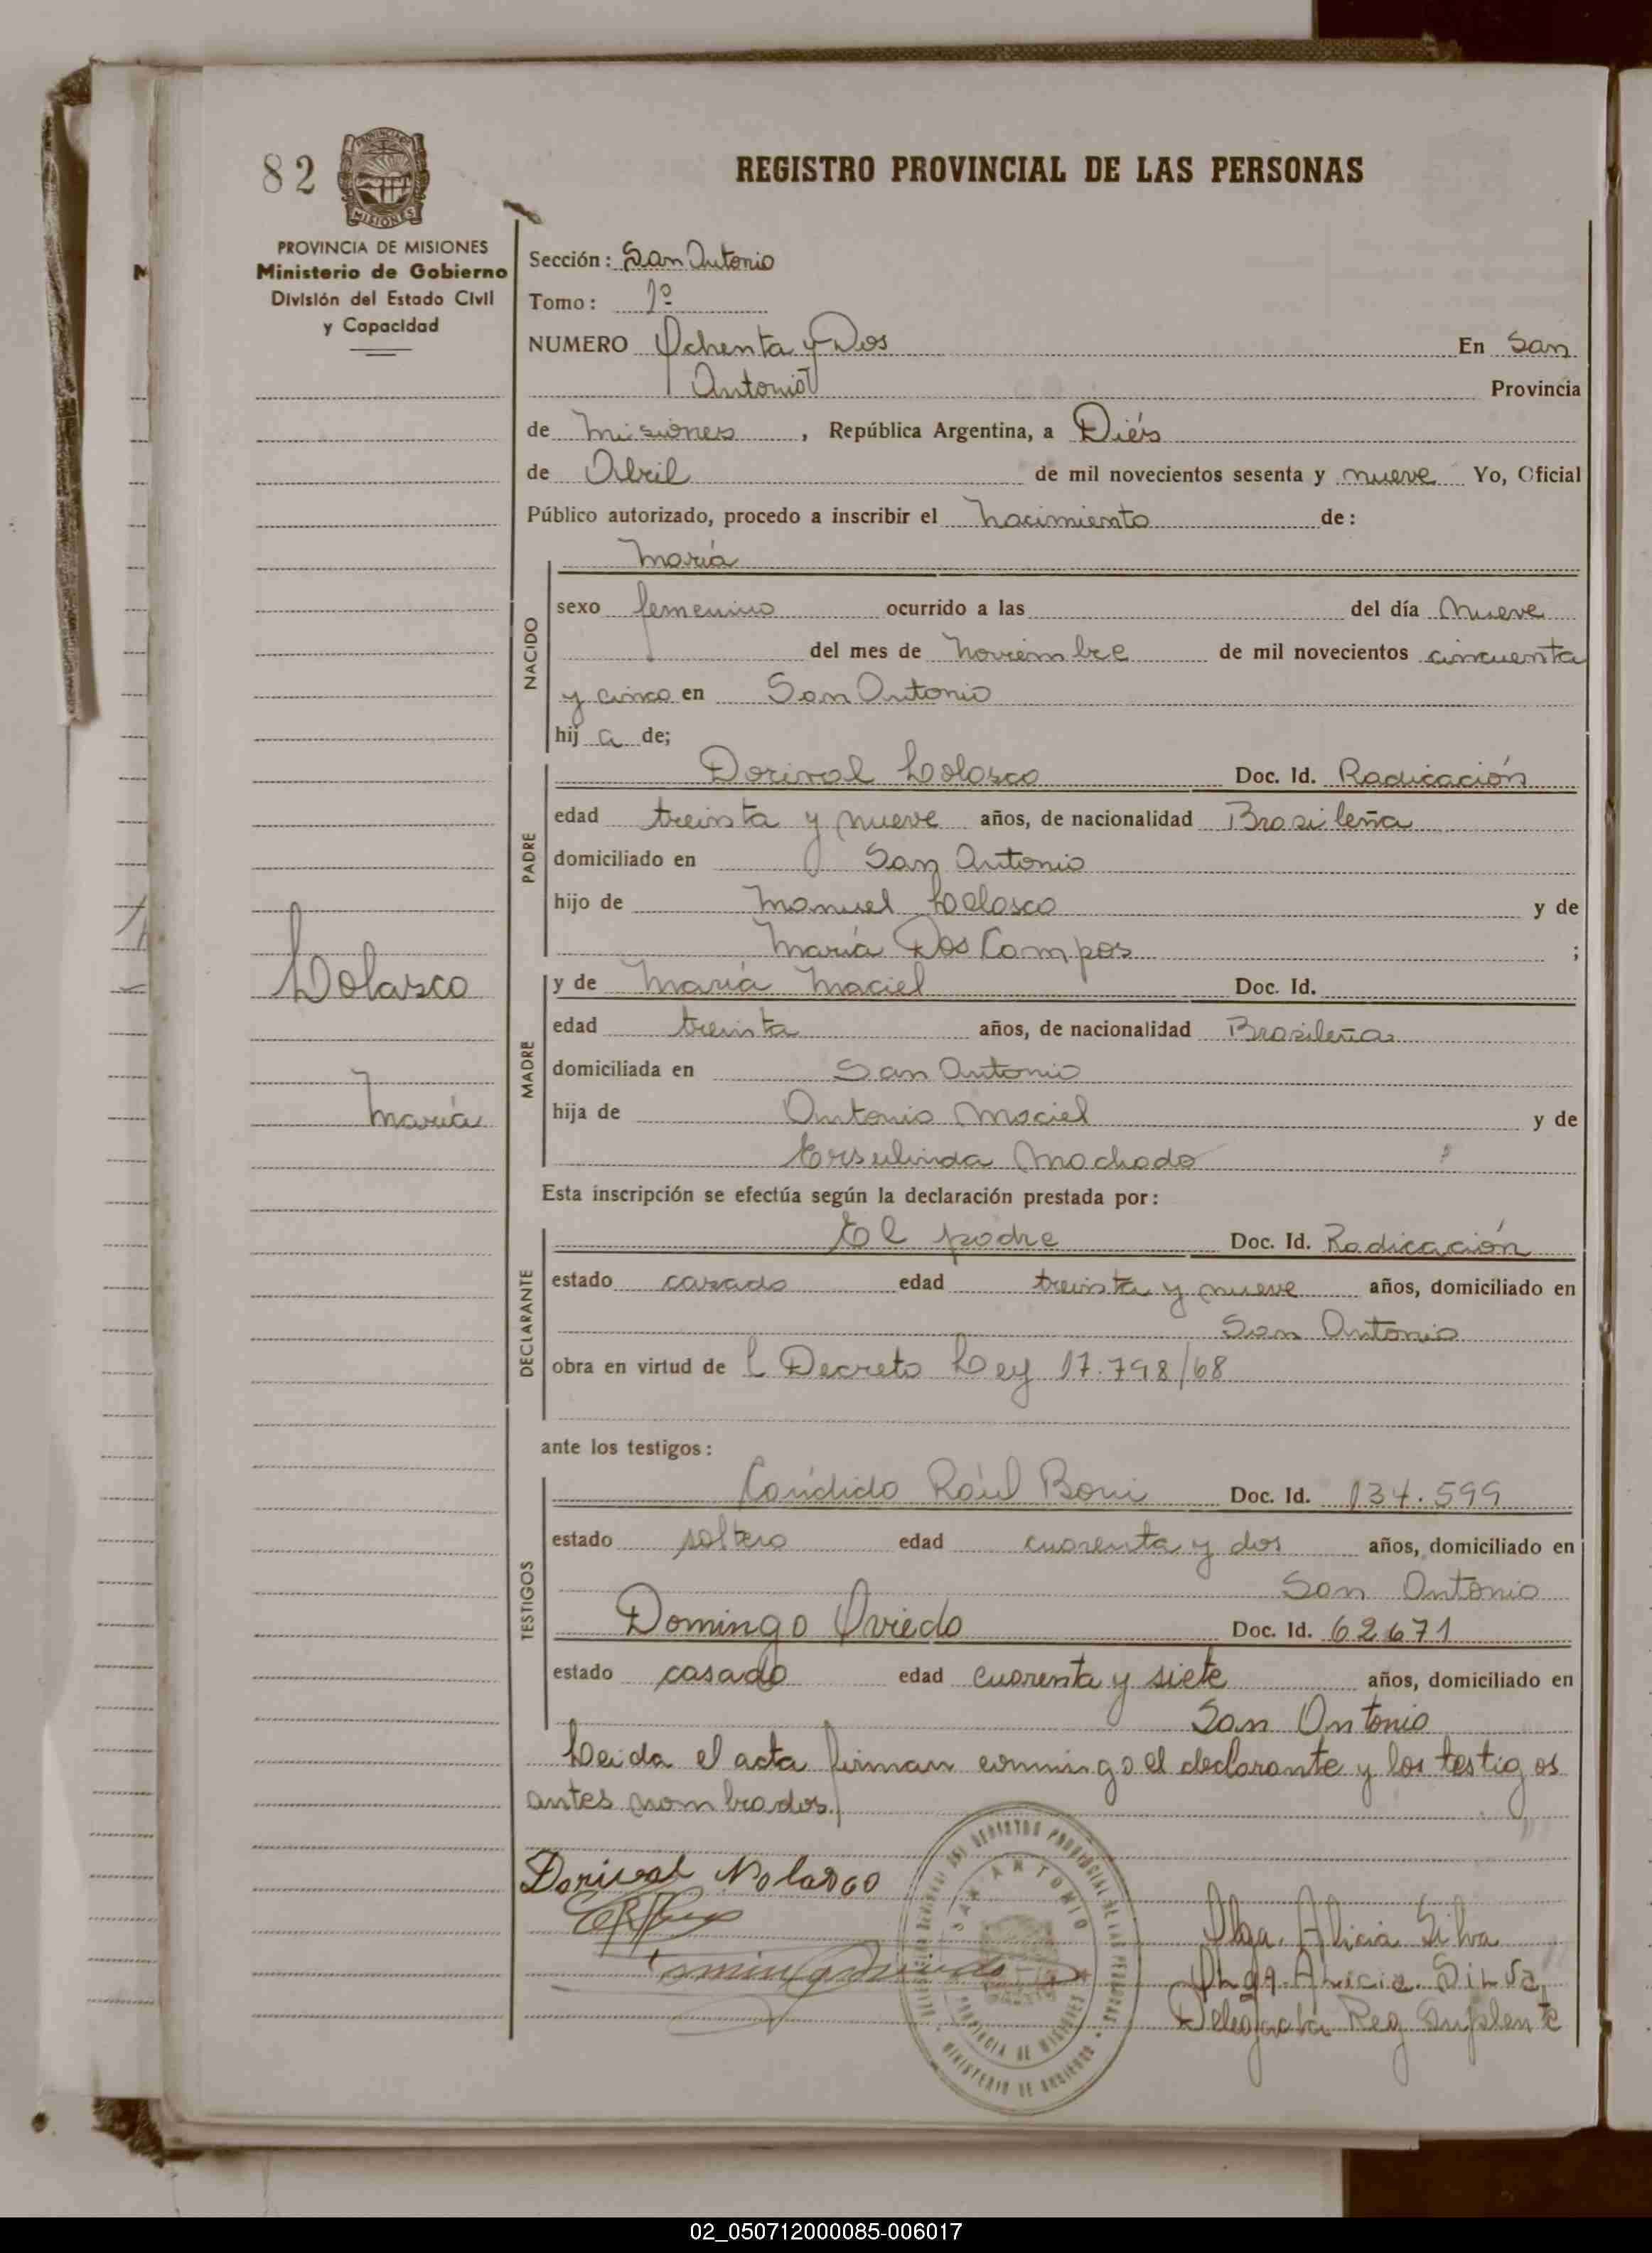 82
PROVINCIA DE MISIONES
MISIONES
REGISTRO PROVINCIAL DE LAS PERSONAS
PROVINCIA DE MISIONES
Ministerio de Gobierno
División del Estado Civil
y Capacidad
Sección: San Antonio
Tomo: 1º
NUMERO Ochenta y Dos En San
Antonio Provincia
de Misiones, República Argentina, a Diés
de Abril de mil novecientos sesenta y nueve Yo, Oficial
Público autorizado, procedo a inscribir el nacimiento de:
María
NACIDO
sexo femenino ocurrido a las del día Nueve
del mes de Noviembre de mil novecientos cincuenta
y cinco en San Antonio
hij a de;
PADRE
Dorival Lolasco Doc. Id. Radicación
edad treinta y nueve años, de nacionalidad Brasileña
domiciliado en San Antonio
hijo de Manuel Lolasco y de
María Dos Campos ;
Lolasco
María
MADRE
y de María Maciel Doc. Id.
edad treinta años, de nacionalidad Brasileña
domiciliada en San Antonio
hija de Antonio Maciel y de
Ersulinda Machado
Esta inscripción se efectúa según la declaración prestada por:
DECLARANTE
El padre Doc. Id. Radicación
estado casado edad treinta y nueve años, domiciliado en
San Antonio
obra en virtud de l Decreto Ley 17.798/68
ante los testigos:
TESTIGOS
Cándido Raúl Boni Doc. Id. 134.599
estado soltero edad cuarenta y dos años, domiciliado en
San Antonio
Domingo Oviedo Doc. Id. 62671
estado casado edad cuarenta y siete años, domiciliado en
San Antonio
Leida el acta firman conmigo el declarante y los testigos
antes nombrados.
Dorival Nolasco
SAN ANTONIO
PROVINCIA DE MISIONES
REGISTRO PROVINCIAL DE LAS PERSONAS
MINISTERIO DE GOBIERNO
Olga Alicia Silva
Olga Alicia Silva
Delegada Reg Suplente
02_050712000085-006017